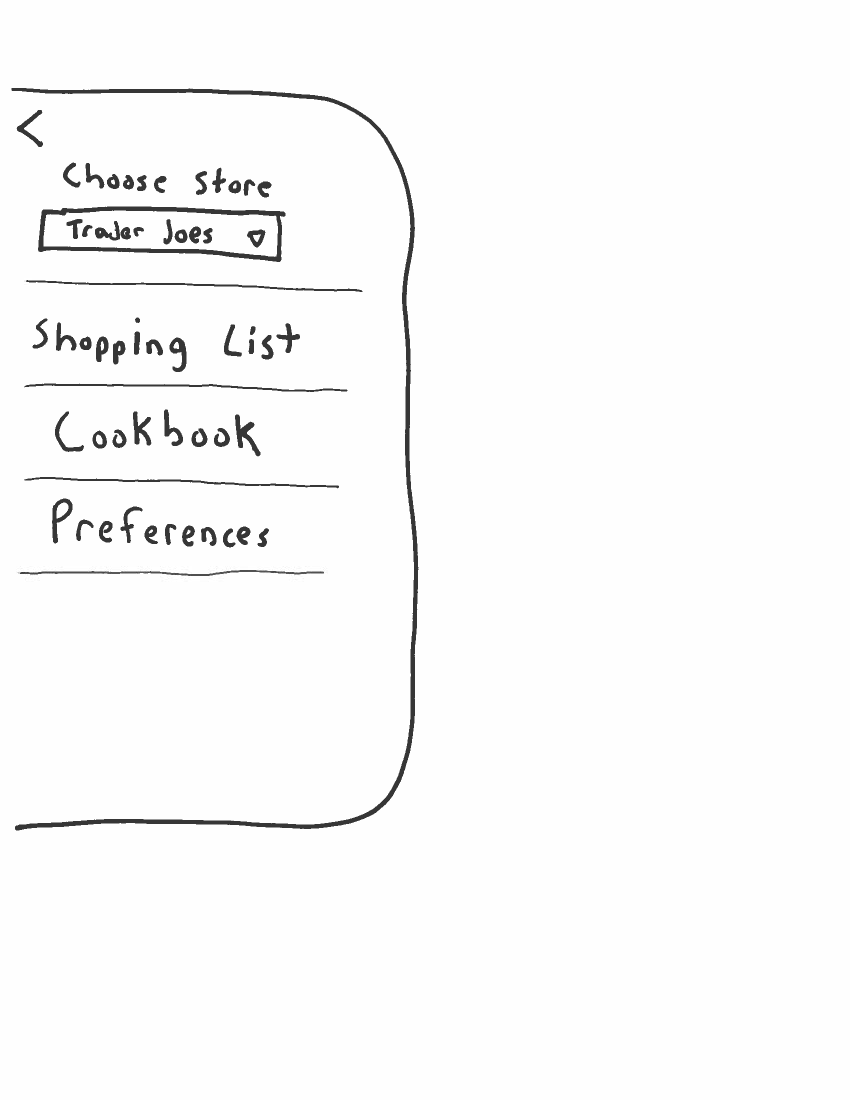 <
Choose Store
Trader Joes
Shopping List
Cookbook
Preferences